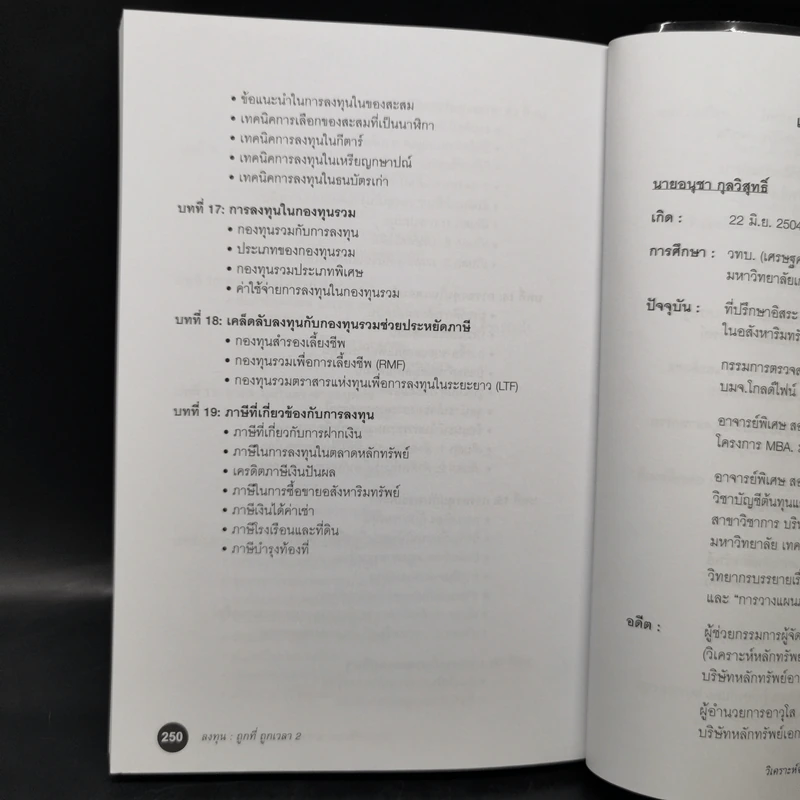 • ข้อแนะนำในการลงทุนในของสะสม
• เทคนิคการเลือกของสะสมที่เป็นนาฬิกา
• เทคนิคการลงทุนในกีตาร์
• เทคนิคการลงทุนในเหรียญกษาปณ์
• เทคนิคการลงทุนในธนบัตรเก่า
บทที่ 17: การลงทุนในกองทุนรวม
• กองทุนรวมกับการลงทุน
• ประเภทของกองทุนรวม
• กองทุนรวมประเภทพิเศษ
• ค่าใช้จ่ายการลงทุนในกองทุนรวม
บทที่ 18: เคล็ดลับลงทุนกับกองทุนรวมช่วยประหยัดภาษี
• กองทุนสำรองเลี้ยงชีพ
• กองทุนรวมเพื่อการเลี้ยงชีพ (RMF)
• กองทุนรวมตราสารแห่งทุนเพื่อการลงทุนในระยะยาว (LTF)
บทที่ 19: ภาษีที่เกี่ยวข้องกับการลงทุน
• ภาษีที่เกี่ยวกับการฝากเงิน
• ภาษีในการลงทุนในตลาดหลักทรัพย์
• เครดิตภาษีเงินปันผล
• ภาษีในการซื้อขายอสังหาริมทรัพย์
• ภาษีเงินได้ค่าเช่า
• ภาษีโรงเรือนและที่ดิน
• ภาษีบำรุงท้องที่
250 ลงทุน : ถูกที่ ถูกเวลา 2
นายอนุชา กุลวิสุทธิ์
เกิด : 22 มิ.ย. 2504
การศึกษา : วทบ. (เศรษฐ
มหาวิทยาลัย
ปัจจุบัน : ที่ปรึกษาอิสระ
ในอสังหาริมทรั
กรรมการตรวจส
บมจ.โกลด์ไฟน์
อาจารย์พิเศษ สอ
โครงการ MBA.
อาจารย์พิเศษ สอ
วิชาบัญชีต้นทุนแ
สาขาวิชาการ บริ
มหาวิทยาลัย เทค
วิทยากรบรรยายเรื่
และ "การวางแผน
อดีต : ผู้ช่วยกรรมการผู้จัด
(วิเคราะห์หลักทรัพย
บริษัทหลักทรัพย์อา
ผู้อำนวยการอาวุโส
บริษัทหลักทรัพย์เอก
วิเคราะห์